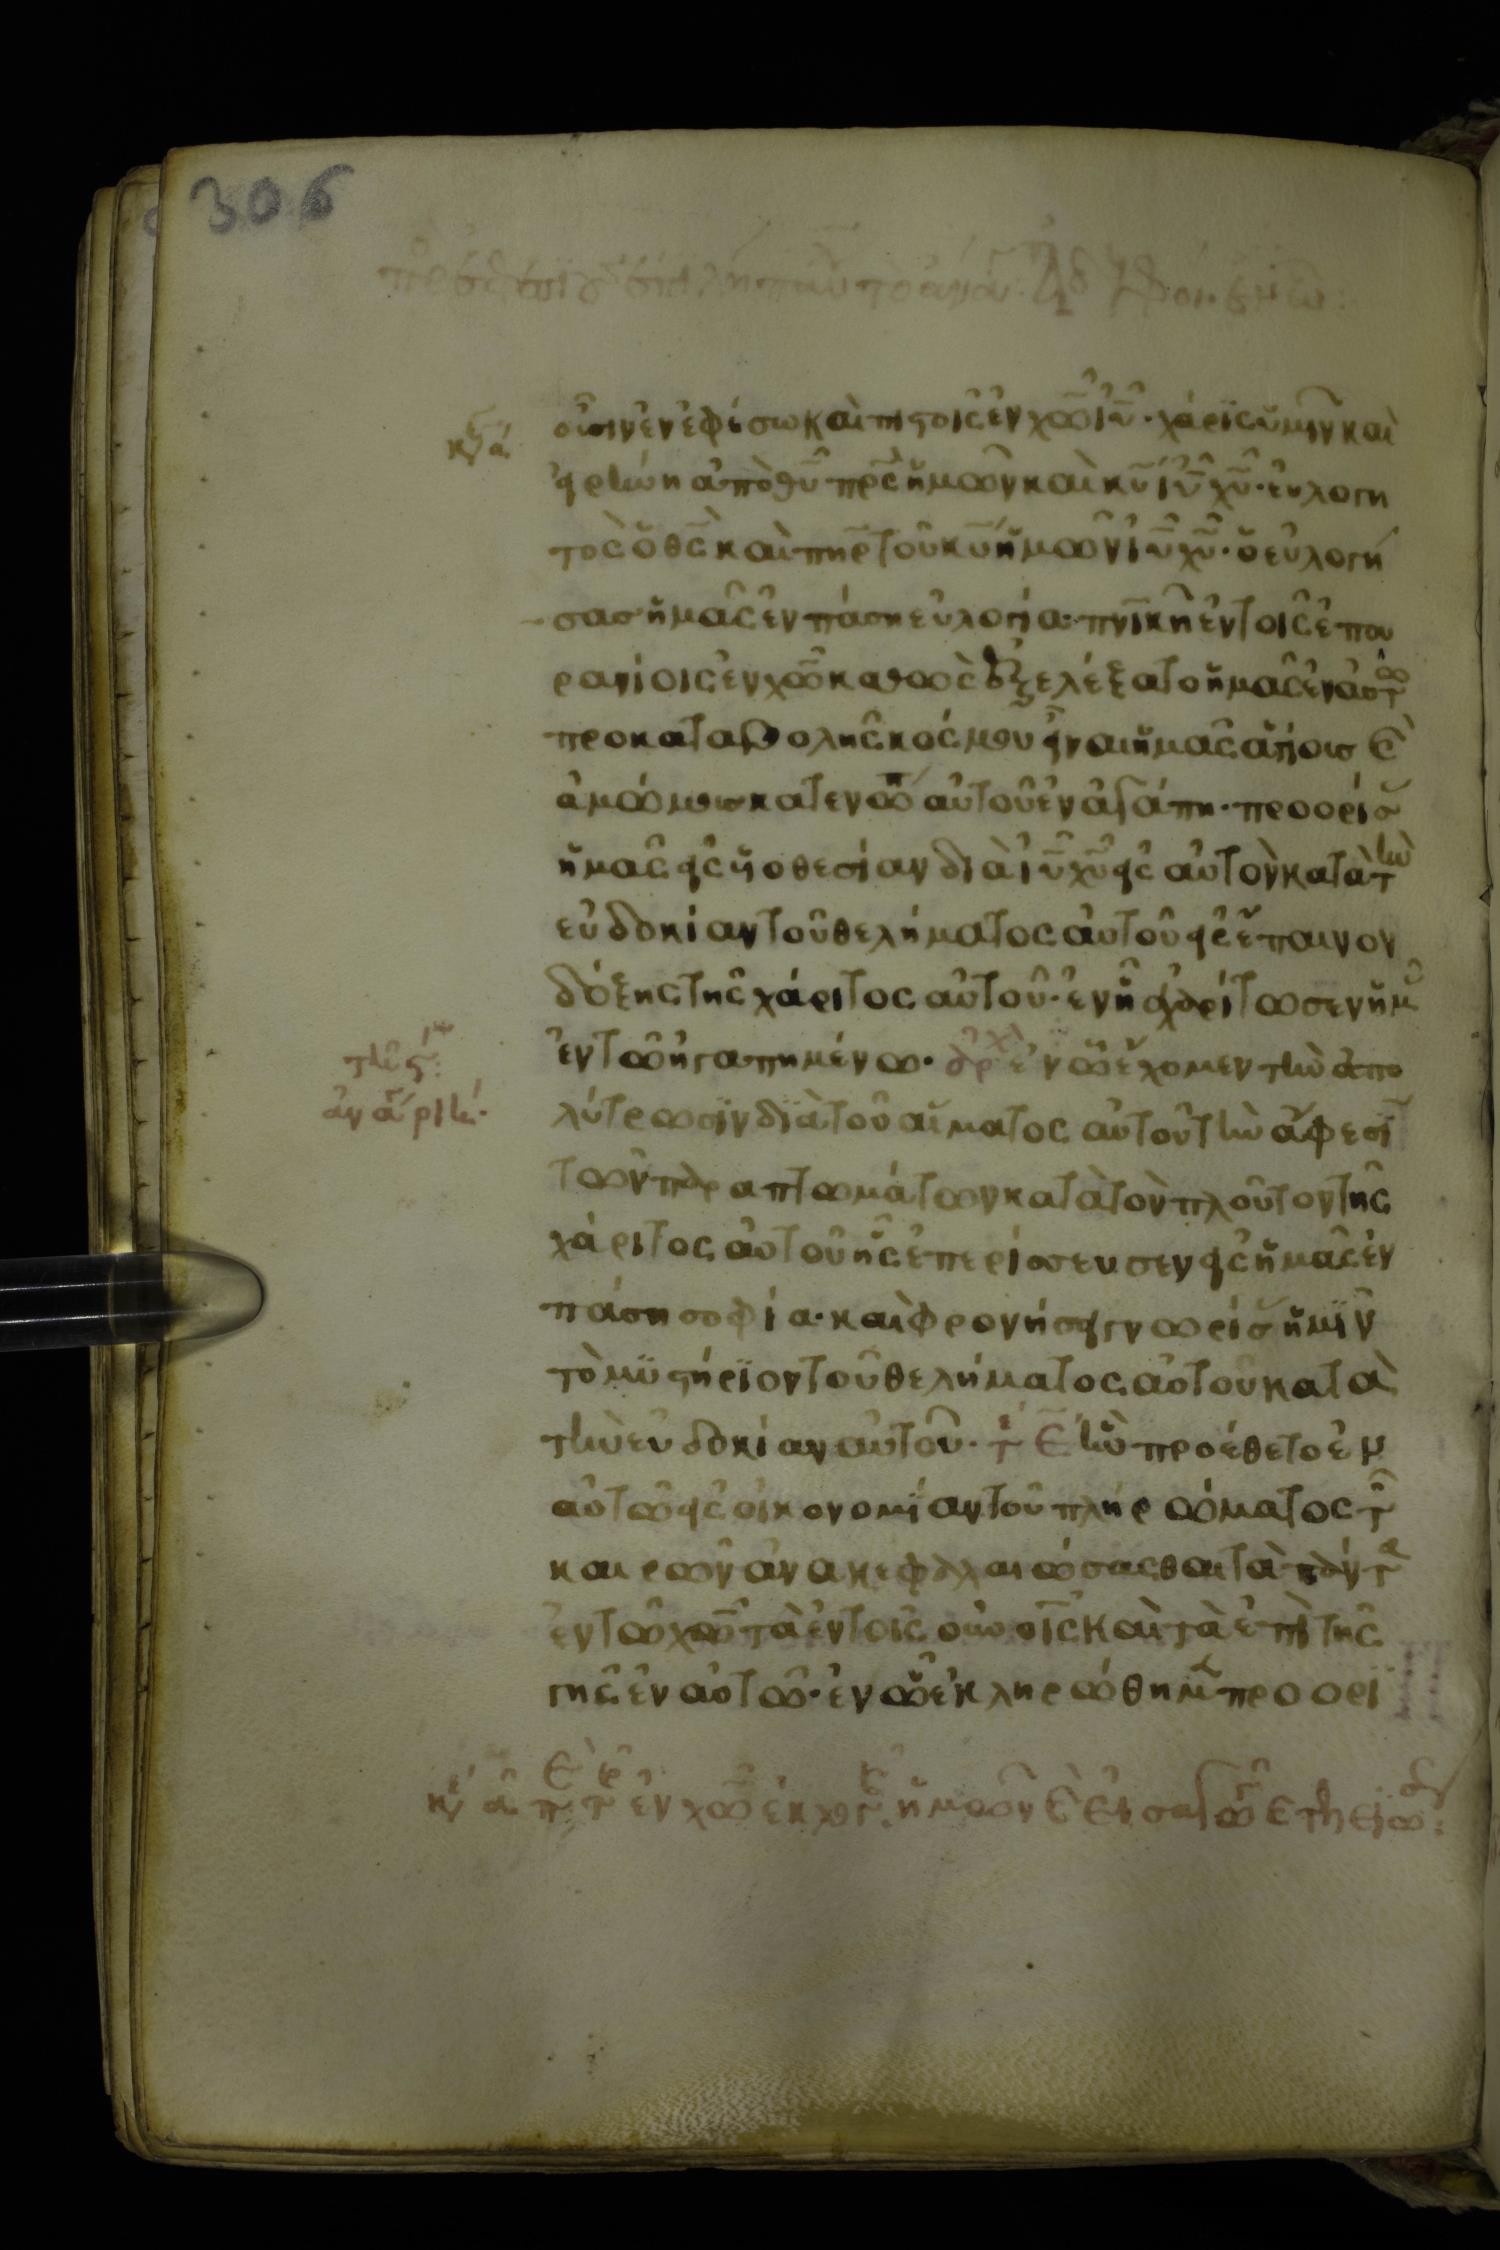 306
κε α
οὖσιν ἐν ἐφέσω καὶ πιστοῖς ἐν χῶ ἰῦ· χάρις ὑμῖν καὶ
εἰρήνη ἀπὸ θῦ πρς ἡμῶν καὶ κῦ ἰῦ χῦ· εὐλογη
τὸς ὁ θς καὶ πηρ τοῦ κῦ ἡμῶν ἰῦ χῦ· ὁ εὐλογή
σας ἡμᾶς ἐν πάση εὐλογία πνικῆ ἐν τοῖς ἐπου
ρανίοις ἐν χῶ καθὼς ἐξελέξατο ἡμᾶς ἐν αὐτῶ
προ καταβολῆς κόσμου εἶναι ἡμᾶς ἁγίους καὶ
ἀμώμους κατενώπ αὐτοῦ ἐν ἀγάπη· προορίσ
ἡμᾶς εἰς ὑοθεσίαν διὰ ἰῦ χῦ εἰς αὐτὸν κατὰ τὴν
εὐδοκίαν τοῦ θελήματος αὐτοῦ εἰς ἔπαινον
δόξης τῆς χάριτος αὐτοῦ· ἐν ἧ ἐχαρίτωσεν ἡμ
ἐν τῶ ἠγαπημένω· ἀρχ ἐν ὧ ἔχομεν τὴν ἀπο
λύτρωσιν διὰ τοῦ αἵματος αὐτοῦ τὴν ἄφεσι
τῶν παραπτωμάτων κατὰ τὸν πλοῦτον τῆς
χάριτος αὐτοῦ ἧς ἐπερίσσευσεν εἰς ἡμᾶς ἐν
πάση σοφία· καὶ φρονήσει γνωρίσ ἡμῖν
τὸ μυστήριον τοῦ θελήματος αὐτοῦ κατὰ
τὴν εὐδοκίαν αὐτοῦ· ἣν προέθετο ἐν
αὐτῶ εἰς οἰκονομίαν τοῦ πληρώματος τ
καιρῶν ἀνακεφαλαιώσασθαι τὰ πάντα
ἐν τῶ χῶ τὰ ἐν τοῖς οὐνοῖς καὶ τὰ ἐπὶ τῆς
γῆς ἐν αὐτῶ· ἐν ὧ ἐκληρώθημ προορι